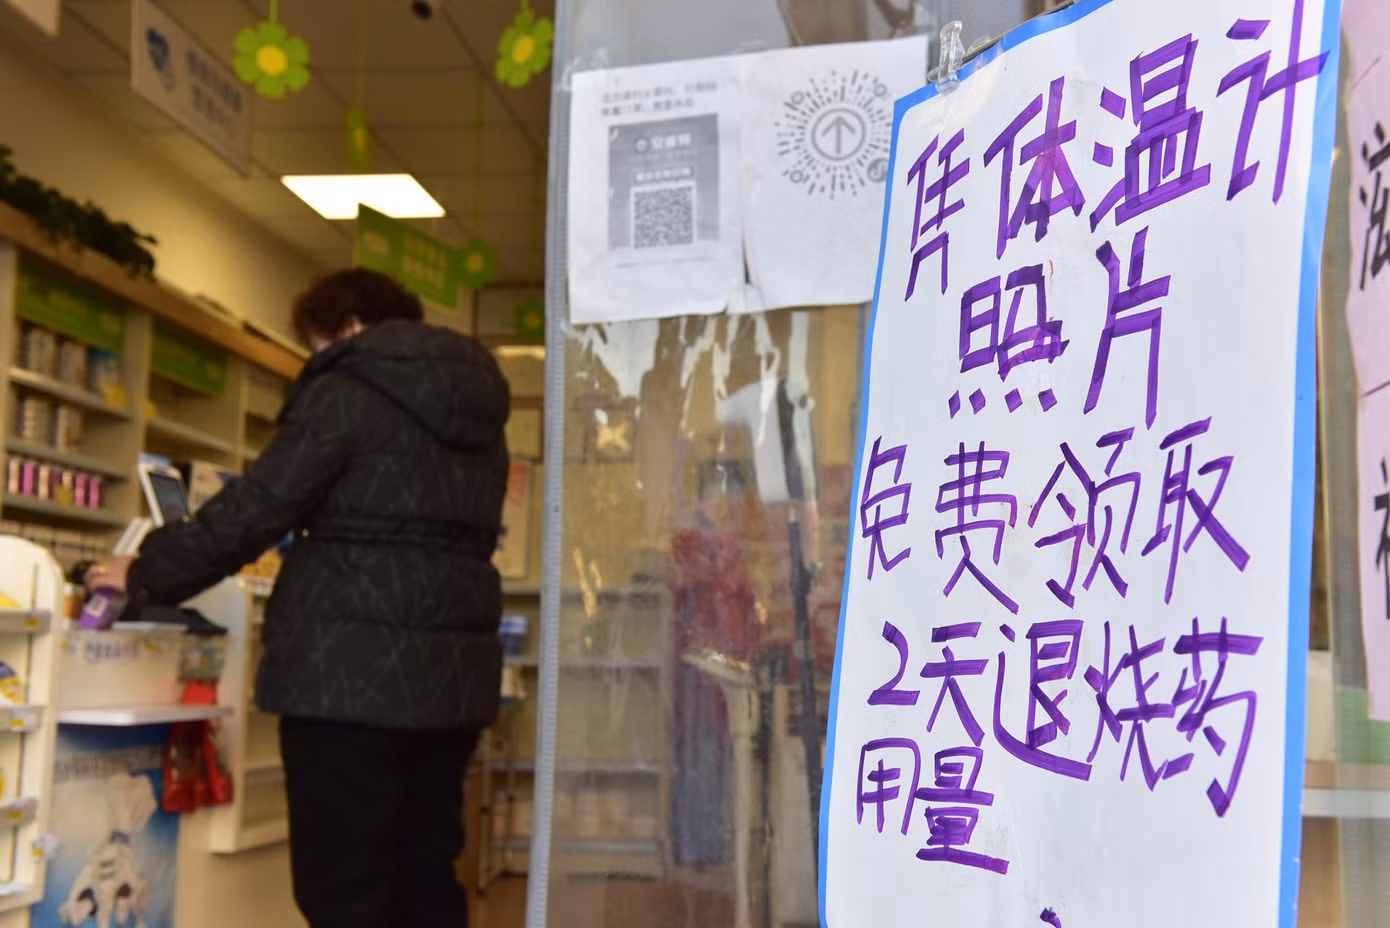 凭体温计
照片
免费领取
2天退烧药
用量